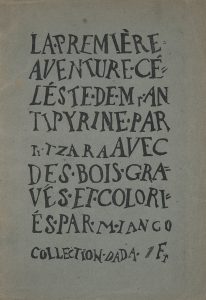 LA·PREMIÈRE·
AVENTURE·CÉ-
LÉSTE·DE·Mr·AN
TIPYRINE·PAR
Tr·TZARA AVEC
DES·BOIS·GRA-
VÉS·ET·COLORI-
ÉS·PAR·M·IANCO
COLLECTION·DADA·1Fr